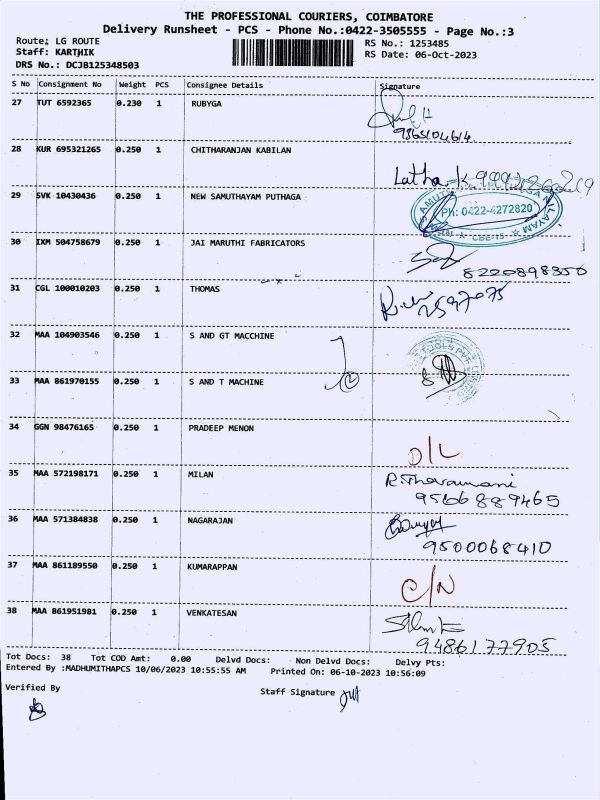 THE PROFESSIONAL COURIERS, COIMBATORE
Delivery Runsheet - PCS - Phone No.:0422-3505555 - Page No.:3
Route: LG ROUTE RS No.: 1253485
Staff: KARTHIK RS Date: 06-Oct-2023
DRS No.: DCJB125348503
S No Consignment No Weight PCS Consignee Details Signature
27 TUT 6592365 0.230 1 RUBYGA
28 KUR 695321265 0.250 1 CHITHARANJAN KABILAN
Latha K
29 SVK 10430436 0.250 1 NEW SAMUTHAYAM PUTHAGA
PH: 0422-4272820
30 IXM 504758679 0.250 1 JAI MARUTHI FABRICATORS
8220898350
31 CGL 100010203 0.250 1 THOMAS
32 MAA 104903546 0.250 1 S AND GT MACCHINE
2
33 MAA 861970155 0.250 1 S AND T MACHINE
34 GGN 98476165 0.250 1 PRADEEP MENON
D/L
35 MAA 572198171 0.250 1 MILAN
R.Tharamani
9566889465
36 MAA 571384838 0.250 1 NAGARAJAN
9500068410
37 MAA 861189550 0.250 1 KUMARAPPAN
C/N
38 MAA 861951981 0.250 1 VENKATESAN
9486177905
Tot Docs: 38 Tot COD Amt: 0.00 Delvd Docs: Non Delvd Docs: Delvy Pts:
Entered By :MADHUMITHAPCS 10/06/2023 10:55:55 AM Printed On: 06-10-2023 10:56:09
Verified By Staff Signature